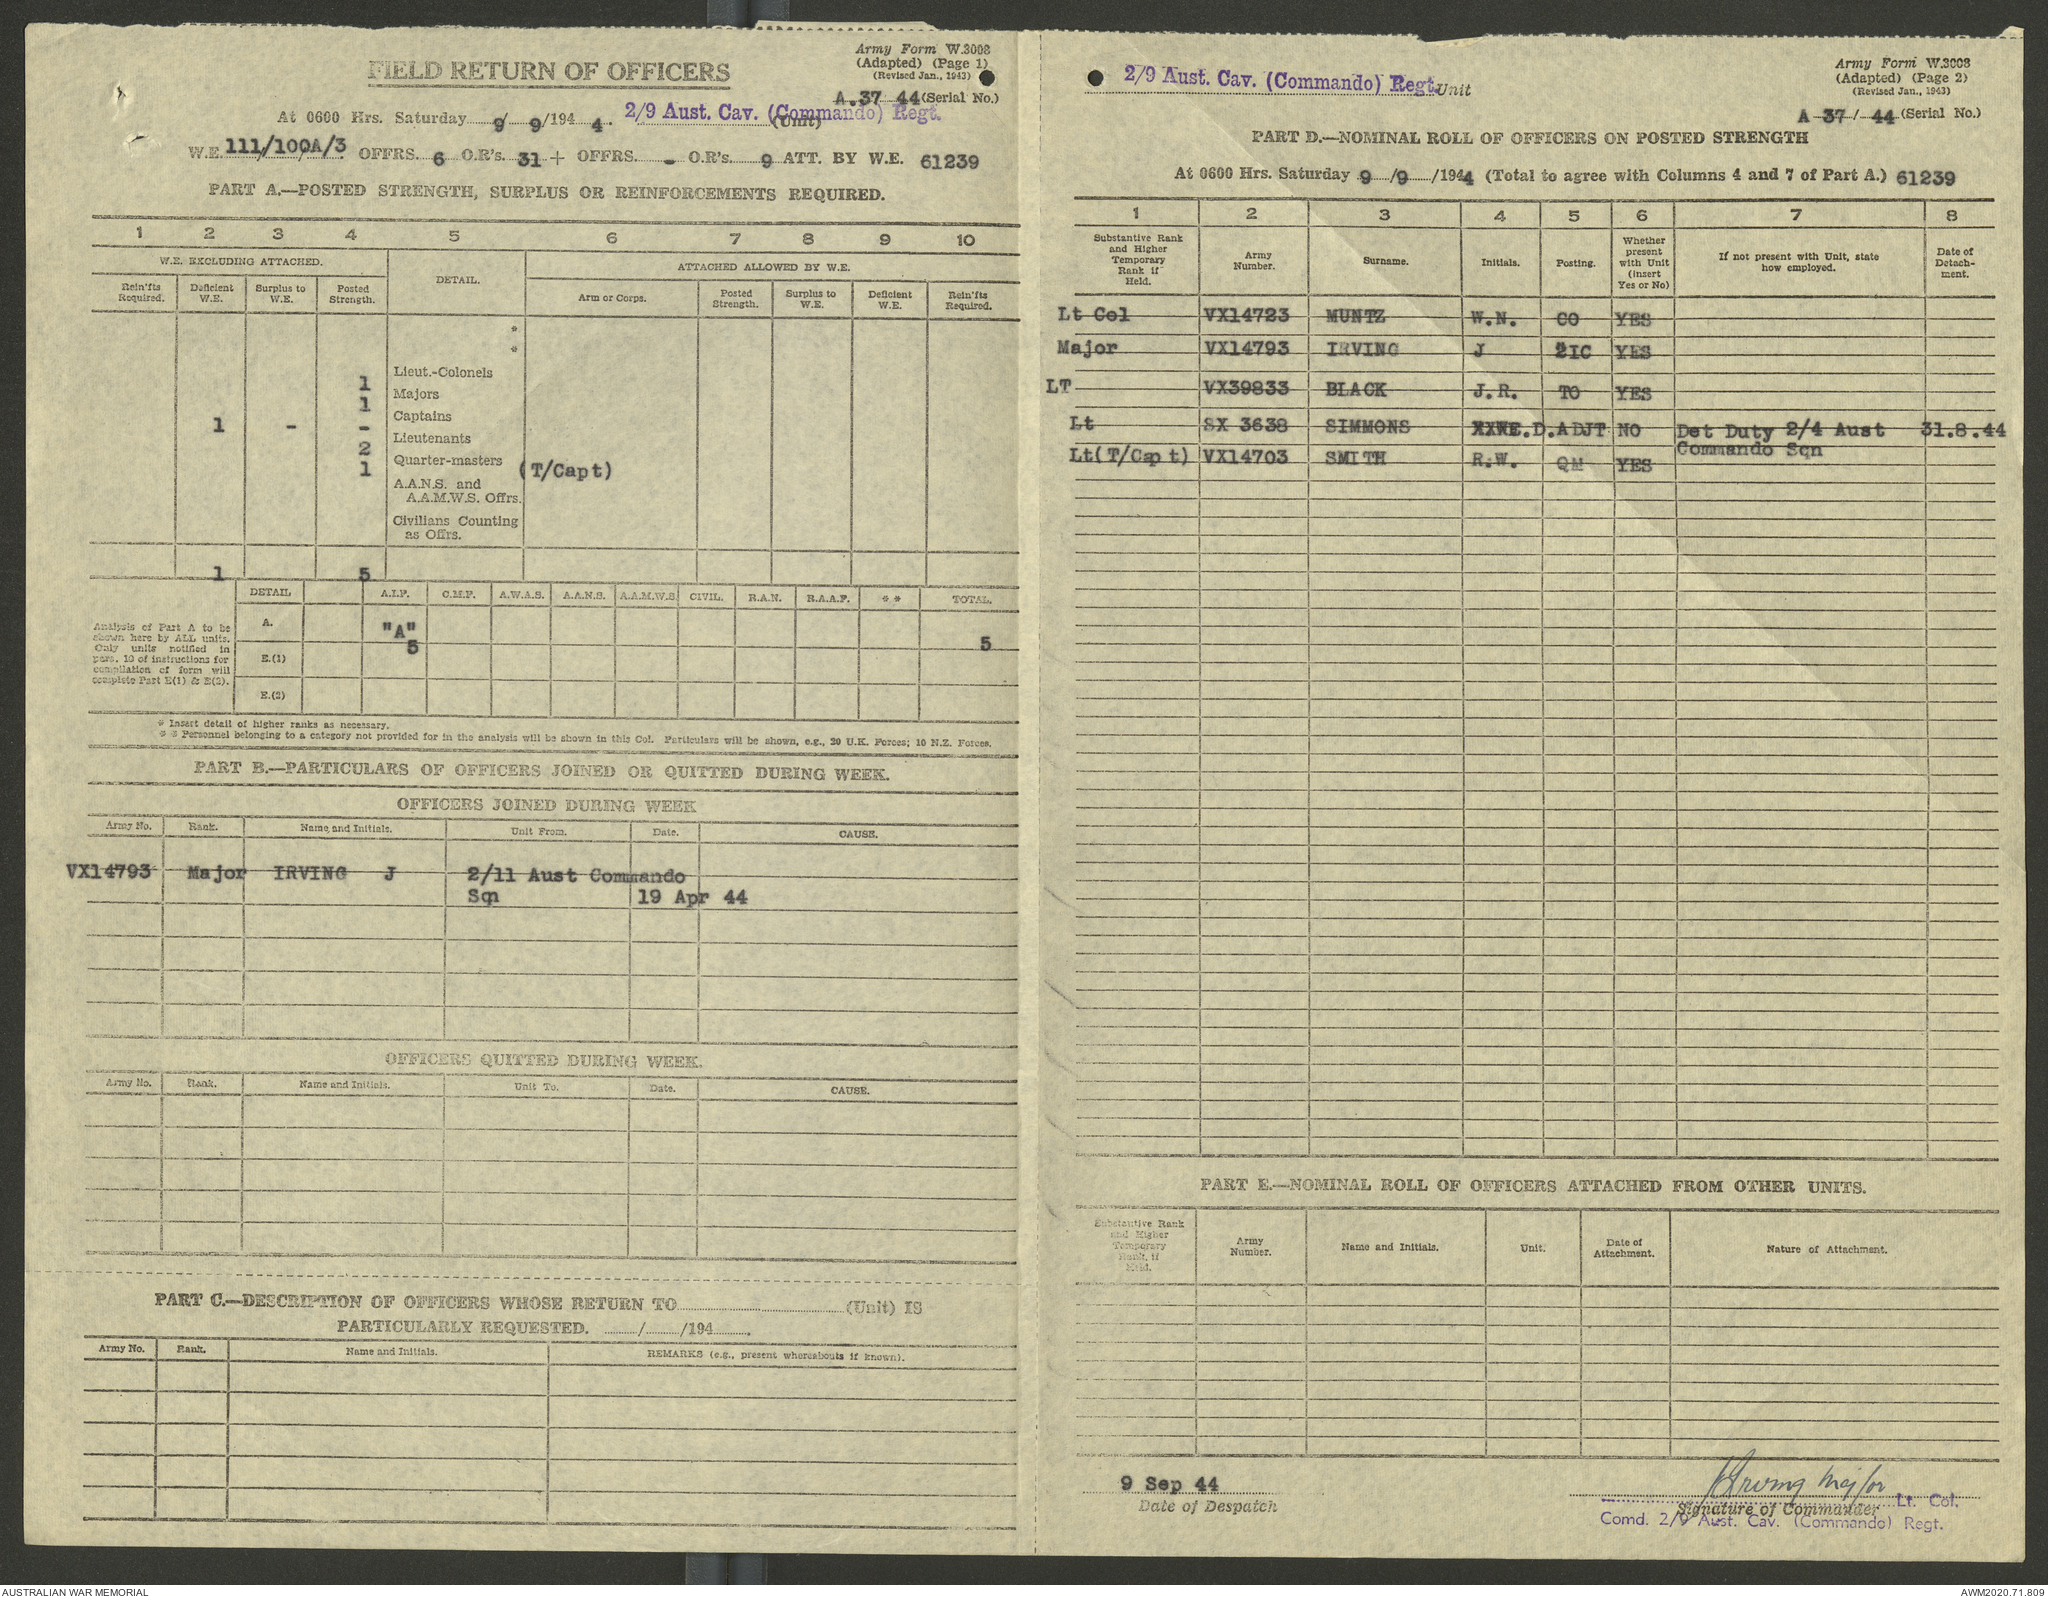 Army Form W.3008
(Adapted) (Page 1)
(Revised Jan., 1943)
FIELD RETURN OF OFFICERS
A.37 44 (Serial No.)
At 0600 Hrs. Saturday 9/9/1944. 2/9 Aust. Cav. (Commando) Regt.
(Unit)
W.E. 111/100A/3 OFFRS. 6 O.R's. 31 + OFFRS. - O.R's. 9 ATT. BY W.E. 61239
PART A.—POSTED STRENGTH, SURPLUS OR REINFORCEMENTS REQUIRED.
1 2 3 4 5 6 7 8 9 10
W.E. EXCLUDING ATTACHED. DETAIL. ATTACHED ALLOWED BY W.E.
Rein'fts Required. Deficient W.E. Surplus to W.E. Posted Strength. Arm or Corps. Posted Strength. Surplus to W.E. Deficient W.E. Rein'fts Required.
*
*
Lieut.-Colonels
1
Majors
1
Captains
1 - -
Lieutenants
2
Quarter-masters
1 (T/Capt)
A.A.N.S. and
A.A.M.W.S. Offrs.
Civilians Counting
as Offrs.
1 5
DETAIL A.I.F. C.M.F. A.W.A.S. A.A.N.S. A.A.M.W.S. CIVIL. R.A.N. R.A.A.F. * * TOTAL.
Analysis of Part A to be
shown here by ALL units.
Only units notified in
para. 10 of instructions for
compilation of form will
complete Part E(1) & E(2).
A. "A"
5 5
E.(1)
E.(2)
* Insert detail of higher ranks as necessary.
* * Personnel belonging to a category not provided for in the analysis will be shown in this Col. Particulars will be shown, e.g., 20 U.K. Forces; 10 N.Z. Forces.
PART B.—PARTICULARS OF OFFICERS JOINED OR QUITTED DURING WEEK.
OFFICERS JOINED DURING WEEK
Army No. Rank. Name and Initials. Unit From. Date. CAUSE.
VX14793 Major IRVING J 2/11 Aust Commando
Sqn 19 Apr 44
OFFICERS QUITTED DURING WEEK.
Army No. Rank. Name and Initials. Unit To. Date. CAUSE.
PART C.—DESCRIPTION OF OFFICERS WHOSE RETURN TO (Unit) IS
PARTICULARLY REQUESTED. / /194 .
Army No. Rank. Name and Initials. REMARKS (e.g., present whereabouts if known).
Army Form W.3008
(Adapted) (Page 2)
(Revised Jan., 1943)
2/9 Aust. Cav. (Commando) Regt. Unit
A 37/ 44 (Serial No.)
PART D.—NOMINAL ROLL OF OFFICERS ON POSTED STRENGTH
At 0600 Hrs. Saturday 9/9/1944 (Total to agree with Columns 4 and 7 of Part A.) 61239
1 2 3 4 5 6 7 8
Substantive Rank and Higher Temporary Rank if Held. Army Number. Surname. Initials. Posting. Whether present with Unit (insert Yes or No) If not present with Unit, state how employed. Date of Detach-ment.
Lt Col VX14723 MUNTZ W.N. CO YES
Major VX14793 IRVING J 2IC YES
LT VX39833 BLACK J.R. TO YES
Lt SX 3638 SIMMONS XXWE.D. ADJT NO Det Duty 2/4 Aust 31.8.44
Commando Sqn
Lt(T/Capt) VX14703 SMITH R.W. QM YES
PART E.—NOMINAL ROLL OF OFFICERS ATTACHED FROM OTHER UNITS.
Substantive Rank and Higher Temporary Rank, if Held. Army Number. Name and Initials. Unit. Date of Attachment. Nature of Attachment.
9 Sep 44
Date of Despatch
J Irving Major
Lt. Col.
Signature of Commander
Comd. 2/9 Aust. Cav. (Commando) Regt.
AUSTRALIAN WAR MEMORIAL AWM2020.71.809